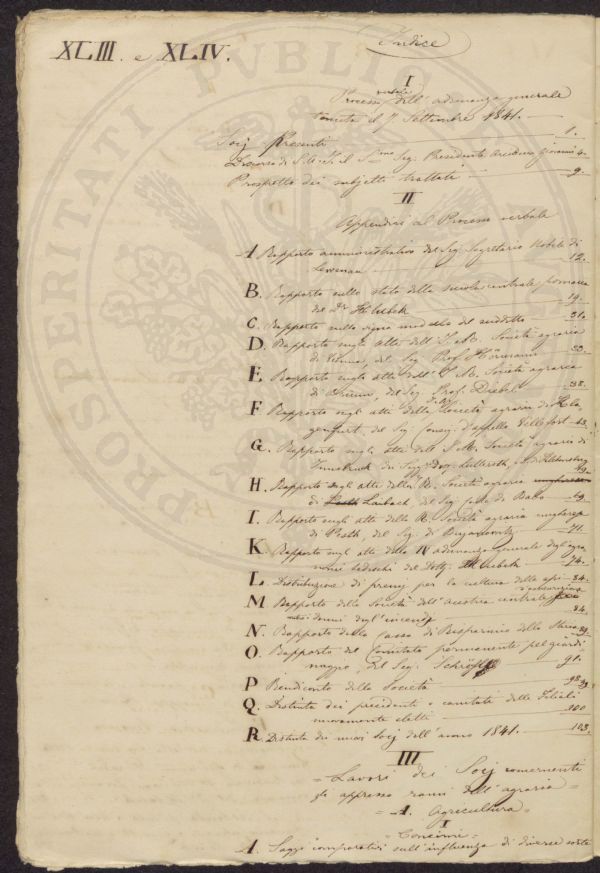 XLIII. e XLIV.
Indice
I
Processo verbale dell' adunanza generale
tenuta il 7 Settembre 1841. —
Socj presenti — 1.
Discorso di S. A. I. il S.mo Sig. Presidente Arciduca Giovanni 4.
Prospetto dei subjetti trattati — 9.
II
Appendici al Processo verbale
A Rapporto amministrativo del Sig. Segretario Nobile di
— 12.
B. Rapporto sullo stato della scuola centrale pomaria
del Dr. Hlubek — 19.
C. Rapporto sulla vigna modello del suddetto — 31.
D. Rapporto sugli atti dell' I. R. Società agraria
di Vienna, del Sig. Prof. Hörmann — 33.
E. Rapporto sugli atti dell' I. R. Società agraria
di del Sig. Prof. — 38.
F Rapporto sugli atti della Società agraria di Kla-
genfurt, del Sig. Consig. d'appello
G. Rapporto sugli atti dell' I. R. Società agraria di
Innsbruck dei Sigg.
H. Rapporto sugli atti della R. Società agraria ungherese
di Pesth Laibach, del Sig. — 69.
I. Rapporto sugli atti della R. Società agraria ungherese
di Pesth, del Sig. di — 71.
K. Rapporto sugli atti della IV adunanza generale degli agro-
nomi tedeschi del Dott. Hlubek — 74.
L. Distribuzione di premj per la cultura delle api — 84.
M Rapporto della Società dell' Austria centrale d'assicurazione
nei danni degl' incendj — 84.
N. Rapporto della Cassa di Risparmio della Stiria 89.
O. Rapporto del Comitato permanente pel giardi-
naggio, del Sig. — 91.
P Rendiconto della Società — 98.
Q. Distinta dei presidenti e comitati delle Filiali
nuovamente eletti — 100
R. Distinta dei nuovi Socj dell' anno 1841. — 103.
III
= Lavori dei Socj concernenti
gli appresso rami dell' agraria =
= A. Agricultura =
I
= Concimi =
1. Saggi comparativi sull' influenza di diverse sorte
PROSPERITATI PUBLIC